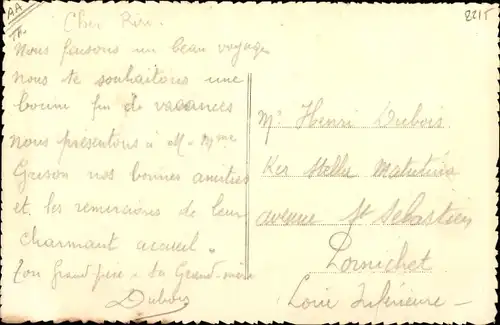 AA
TR.
8215
Cher Riri.
Nous faisons un beau voyage
nous te souhaitons une
bonne fin de vacances
nous présentons à M. Mme
Grison nos bonnes amitiés
et les remercions de leur
charmant accueil.
Ton Grand-père - ta Grand-mère
Dubois
Mr Henri Dubois.
Ker Stella Matutina
avenue St Sebastien
Pornichet
Loire Inférieure -